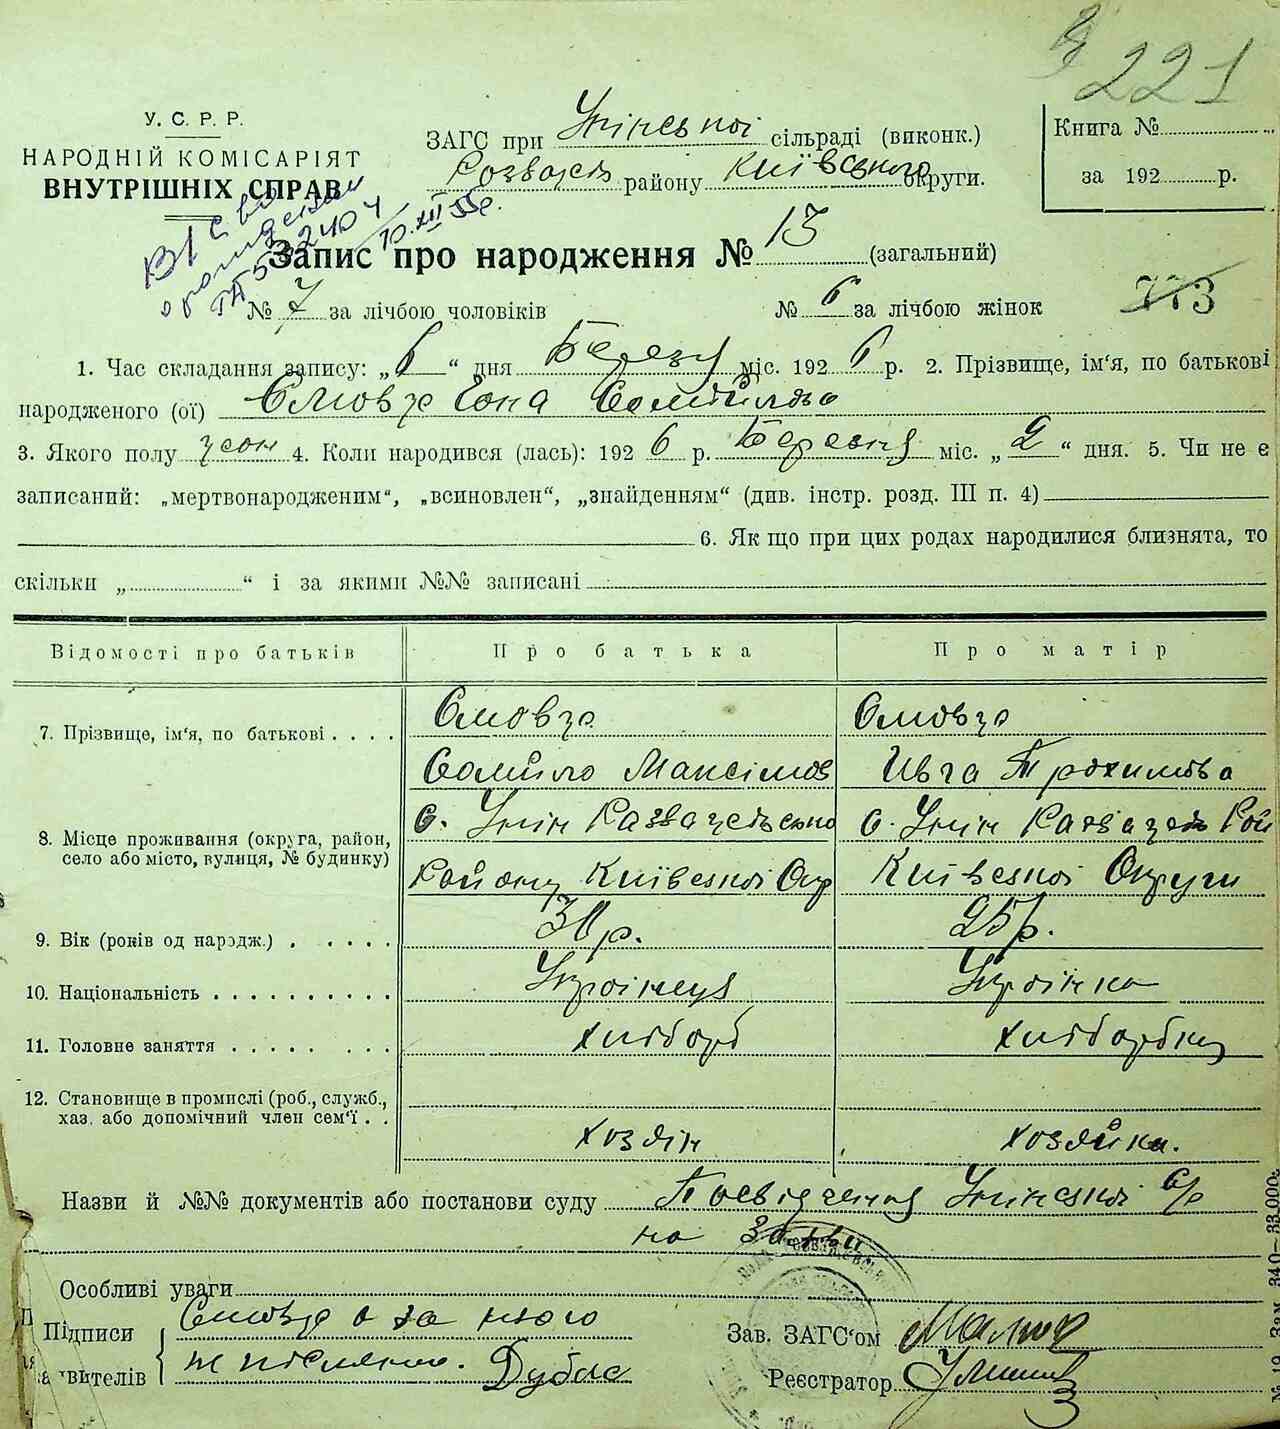 221
У. С. Р. Р.
НАРОДНІЙ КОМІСАРІЯТ
ВНУТРІШНІХ СПРАВ
ЗАГС при Унінської сільраді (виконк.)
Розваж району Київського округи.
Книга №
за 192 р.
10.XII 55г.
Запис про народження № 13 (загальний)
№ 7 за лічбою чоловіків № 6 за лічбою жінок 773
1. Час складання запису: „6“ дня Березня міс. 1926 р. 2. Прізвище, ім‘я, по батькові
народженого (ої)
3. Якого полу жон 4. Коли народився (лась): 1926 р. Березня міс. „2“ дня. 5. Чи не є
записаний: „мертвонародженим“, „всиновлен“, „знайденням“ (див. інстр. розд. III п. 4)
6. Як що при цих родах народилися близнята, то
скільки „ “ і за якими №№ записані
Відомості про батьків Про батька Про матір
7. Прізвище, ім‘я, по батькові
Самійло Максімов Ивга Трохимовна
8. Місце проживання (округа, район, село або місто, вулиця, № будинку)
с. Унін Розважевсько с. Унін Розважев Рай
Району Київської Окр Київської Округи
9. Вік (років од народж.) 30 р. 25 р.
10. Національність Українець Українка
11. Головне заняття хлібороб хліборобка
12. Становище в промислі (роб., служб., хаз. або допомічний член сем‘ї
хозяін хозяйка.
Назви й №№ документів або постанови суду Посвідчення Унінської с/р
на
Особливі уваги
Підписи а за нього
заявителів не письменн. Дубас
Зав. ЗАГС‘ом
Реєстратор
340—33.000.